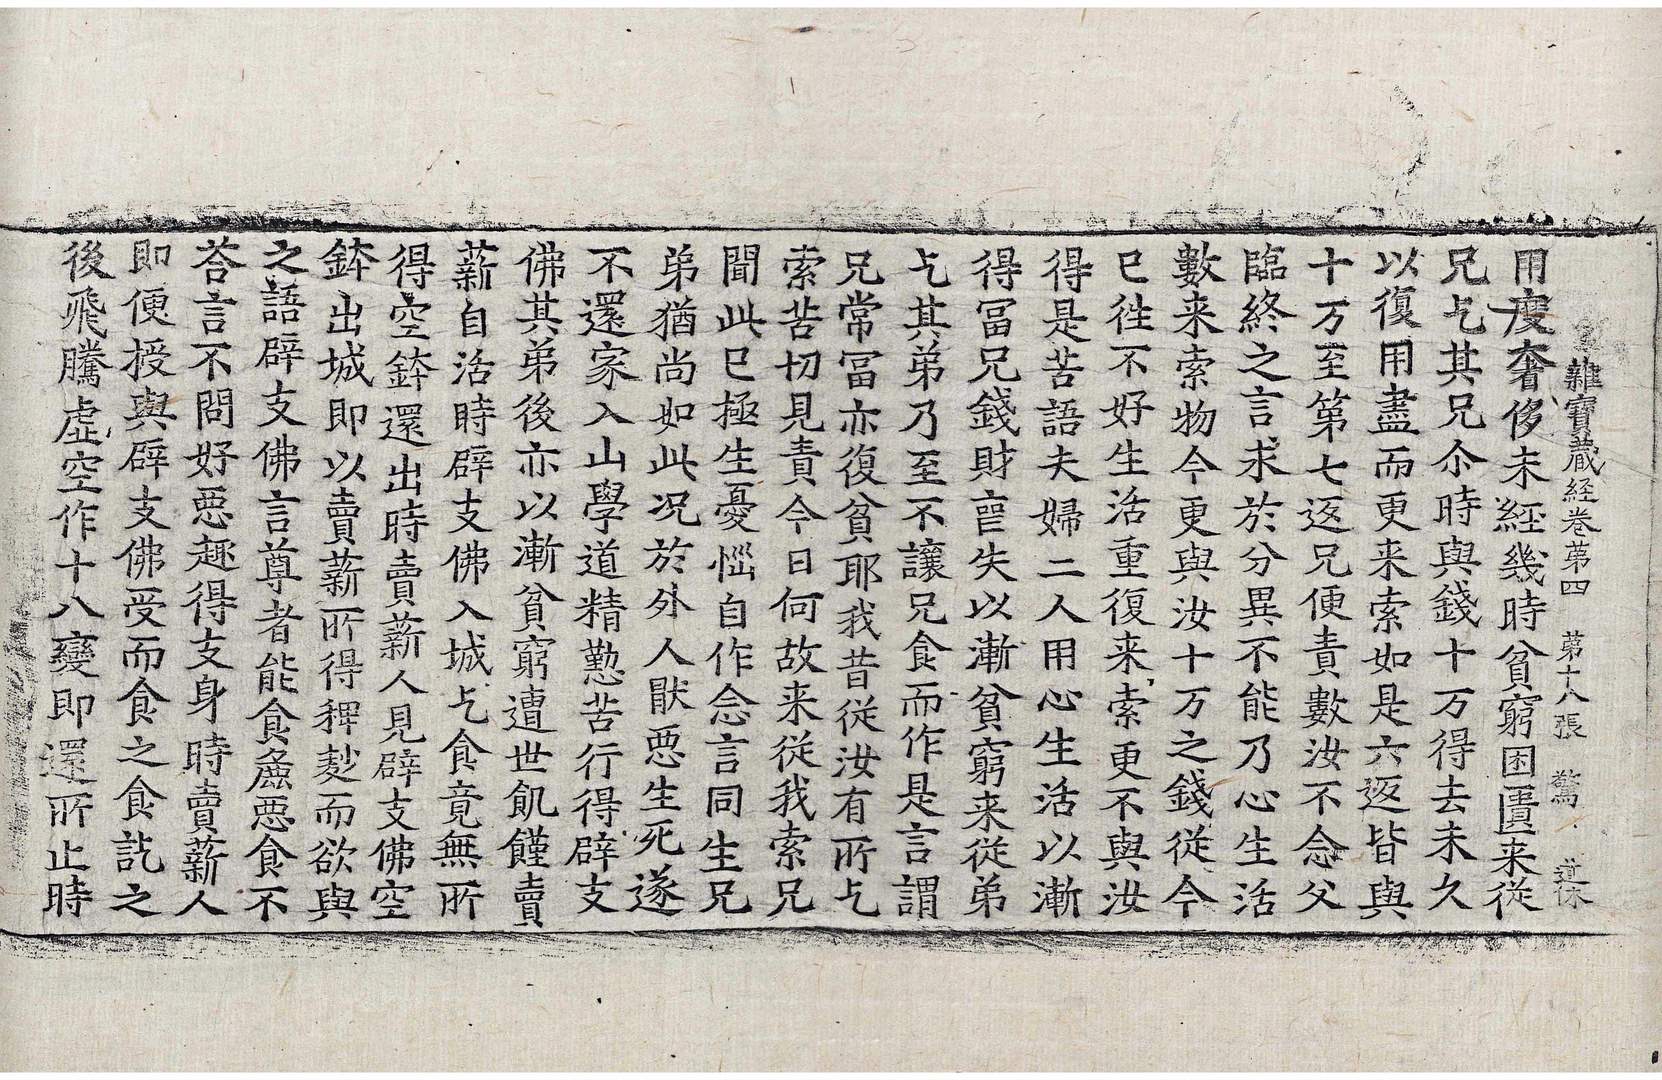 雜寶蔵経卷苐四 苐十八張 驚 道休
用度奢侈未經幾時貧窮困匱来従
兄乞其兄尒時與錢十万得去未久
以復用盡而更来索如是六返皆與
十万至第七返兄便責數汝不念父
臨終之言求於分異不能乃心生活
數来索物今更與汝十万之錢從今
已徃不好生活重復来索更不與汝
得是苦語夫婦二人用心生活以漸
得冨兄錢財亡失以漸貧窮来從弟
乞其弟乃至不讓兄食而作是言謂
兄常冨亦復貧耶我昔從汝有所乞
索苦切見責今日何故来從我索兄
聞此已極生憂惱自作念言同生兄
弟猶尚如此况於外人猒惡生死遂
不還家入山學道精懃苦行得辟支
佛其弟後亦以漸貧窮遭世飢饉賣
薪自活時辟支佛入城乞食竟無所
得空鉢還出時賣薪人見辟支佛空
鉢出城即以賣薪所得稗麨而欲與
之語辟支佛言尊者能食麁惡食不
荅言不問好惡趣得支身時賣薪人
即便授與辟支佛受而食之食訖之
後飛騰虛空作十八變即還所止時